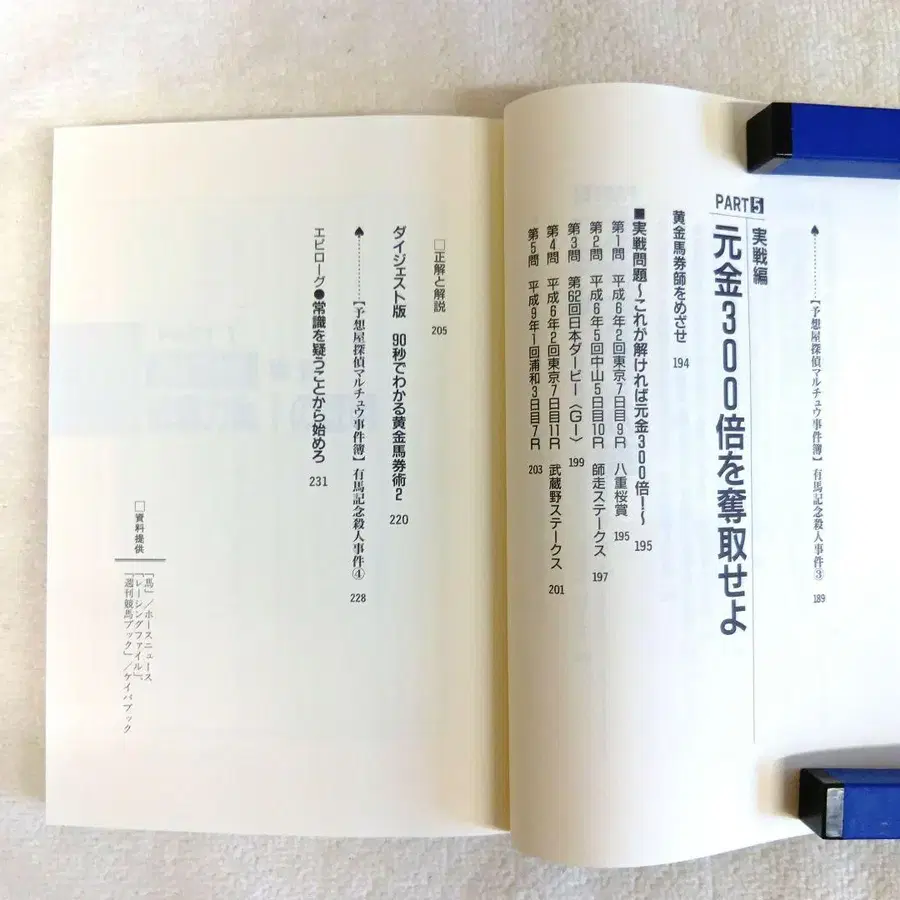 ♠…………【予想屋探偵マルチュウ事件簿】有馬記念殺人事件③ 189
PART5
実戦編
元金300倍を奪取せよ
黄金馬券師をめざせ 194
■実戦問題〜これが解ければ元金300倍!〜 195
第1問 平成6年2回東京7日目9R 八重桜賞 195
第2問 平成6年5回中山5日目10R 師走ステークス 197
第3問 第62回日本ダービー〈GI〉 199
第4問 平成6年2回東京7日目11R 武蔵野ステークス 201
第5問 平成9年1回浦和3日目7R 203
□正解と解説 205
ダイジェスト版 90秒でわかる黄金馬券術2 220
♠…………【予想屋探偵マルチュウ事件簿】有馬記念殺人事件④ 228
エピローグ●常識を疑うことから始めろ 231
□資料提供
「馬」/ホースニュース
「レーシングファイル」、
「週刊競馬ブック」/ケイバブック